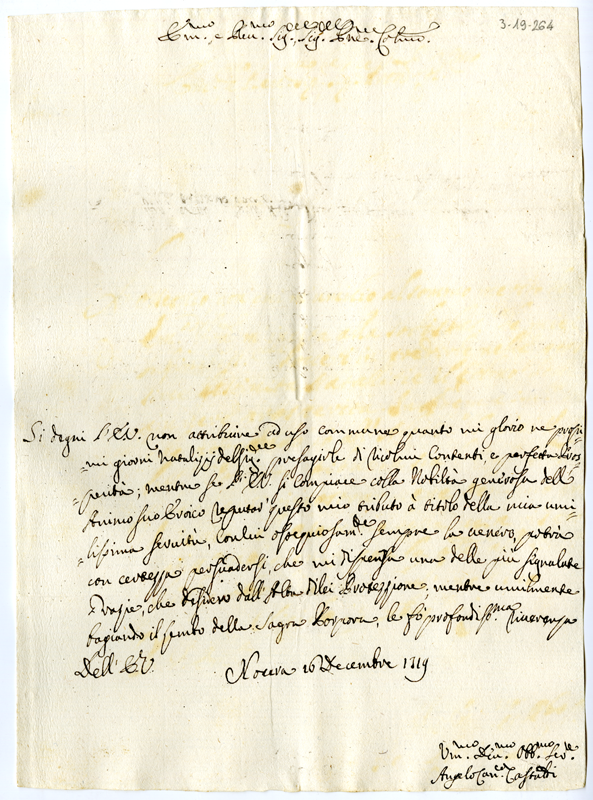 3-19-264
Em.mo e Rev.mo Sig.re Sig.re Pne. Colmo.
Si degni l'E.V. non attribuire ad uso commune quanto mi glorio ne prossi-
-mi giorni Natalizj del Sig.re presagirle di Vicolmi Contenti, e perfetta Pros-
-perità; mentre se l'E.V. si compiace colla Nobiltà generosa dell'
Animo suo Eroico reputar questo mio tributo à titolo della mia umi-
-lissima servitù, con cui ossequiosam.te sempre la venero, potrà
con certezza persuadersi, che mi dispensa una delle più signalate
Grazie, che desidero dall'Alta di lei Protezzione; mentre umilmente
bagiando il lembo della Sagra Porpora, le fò profondiss.ma riverenza
Dell'E.V. Nocera 16 Decembre 1719
Um.mo Dev.mo Obb.mo Ser.e
Angelo Can.co Castaldi